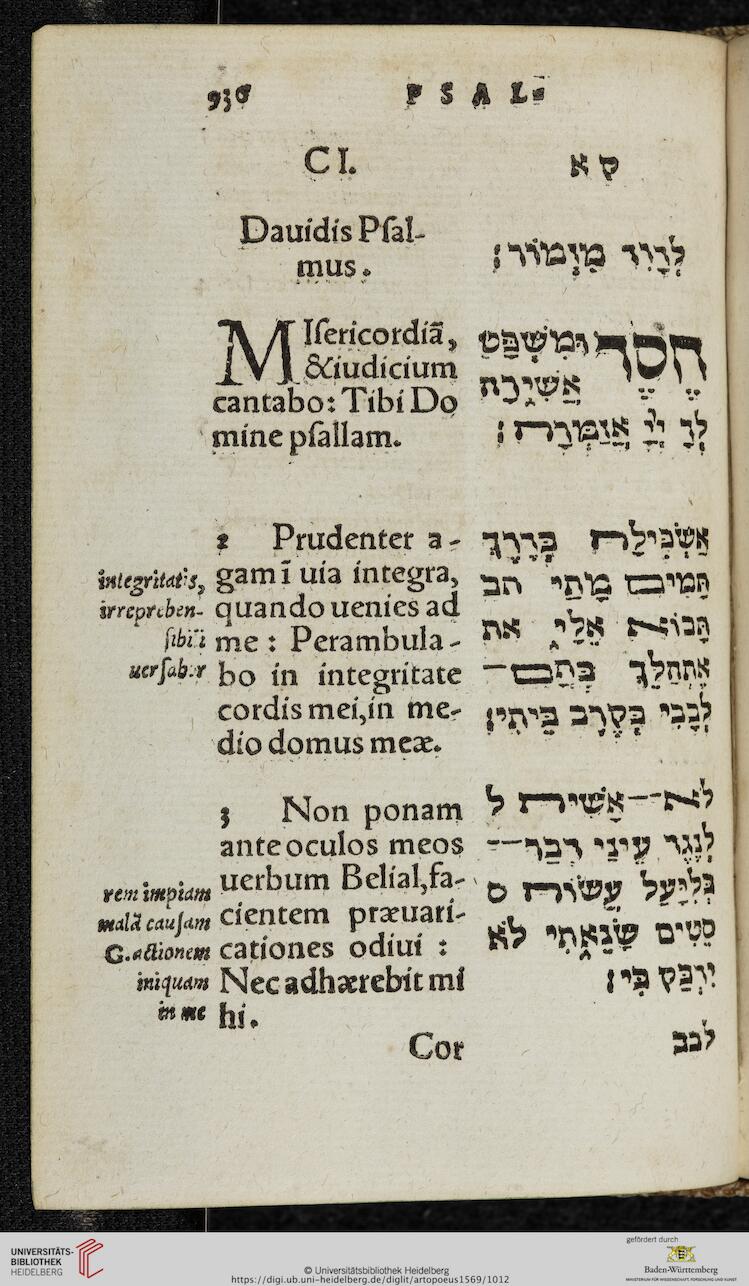 936 PSAL.
CI.
ק א
Dauidis Pſal-
mus.
לְדָוִד מִזְמוֹר׃
MIſericordiã,
&iudicium
cantabo: Tibi Do
mine pſallam.
חֶסֶד וּמִשְׁפָּט
אָשִׁירָה
לְךָ יְיָ אֲזַמֵּרָה׃
2 Prudenter a-
gam ĩ uia integra,
quando uenies ad
me : Perambula-
bo in integritate
cordis mei,in me-
dio domus meæ.
integritatis,
irrepreben-
ſibili
uerſabor
אַשְׂכִּילָה בְּדֶרֶךְ
תָּמִים מָתַי תב
תָּבוֹא אֵלָי את
אֶתְהַלֵּךְ בְּתָם־
לְבָבִי בְּקֶרֶב בֵּיתִי׃
3 Non ponam
ante oculos meos
uerbum Belial,fa-
cientem præuari-
cationes odiui :
Nec adhærebit mi
hi.
rem impiam
malã cauſam
G.actionem
iniquam
in me
לֹא־אָשִׁית ל
לְנֶגֶד עֵינַי דְּבַר־
בְּלִיָּעַל עֲשׂוֹת ס
סֵטִים שָׂנֵאתִי לֹא
יִדְבַּק בִּי׃
Cor
לבב
UNIVERSITÄTS-
BIBLIOTHEK
HEIDELBERG
© Universitätsbibliothek Heidelberg
https://digi.ub.uni-heidelberg.de/diglit/artopoeus1569/1012
gefördert durch
Baden-Württemberg
MINISTERIUM FÜR WISSENSCHAFT, FORSCHUNG UND KUNST